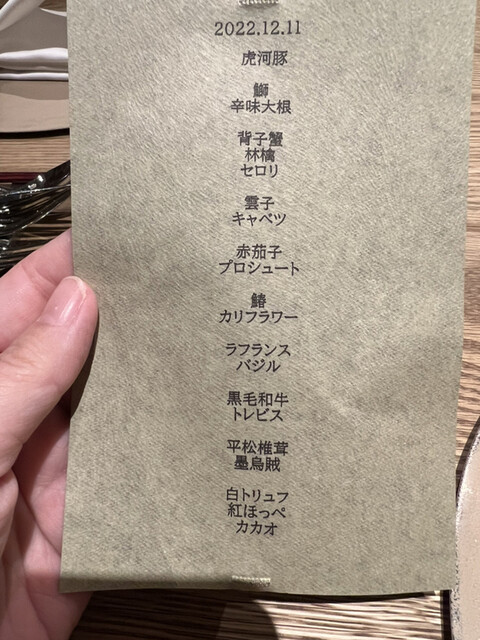 2022.12.11
虎河豚
鰤
辛味大根
背子蟹
林檎
セロリ
雲子
キャベツ
赤茄子
プロシュート
鰆
カリフラワー
ラフランス
バジル
黒毛和牛
トレビス
平松椎茸
墨烏賊
白トリュフ
紅ほっぺ
カカオ